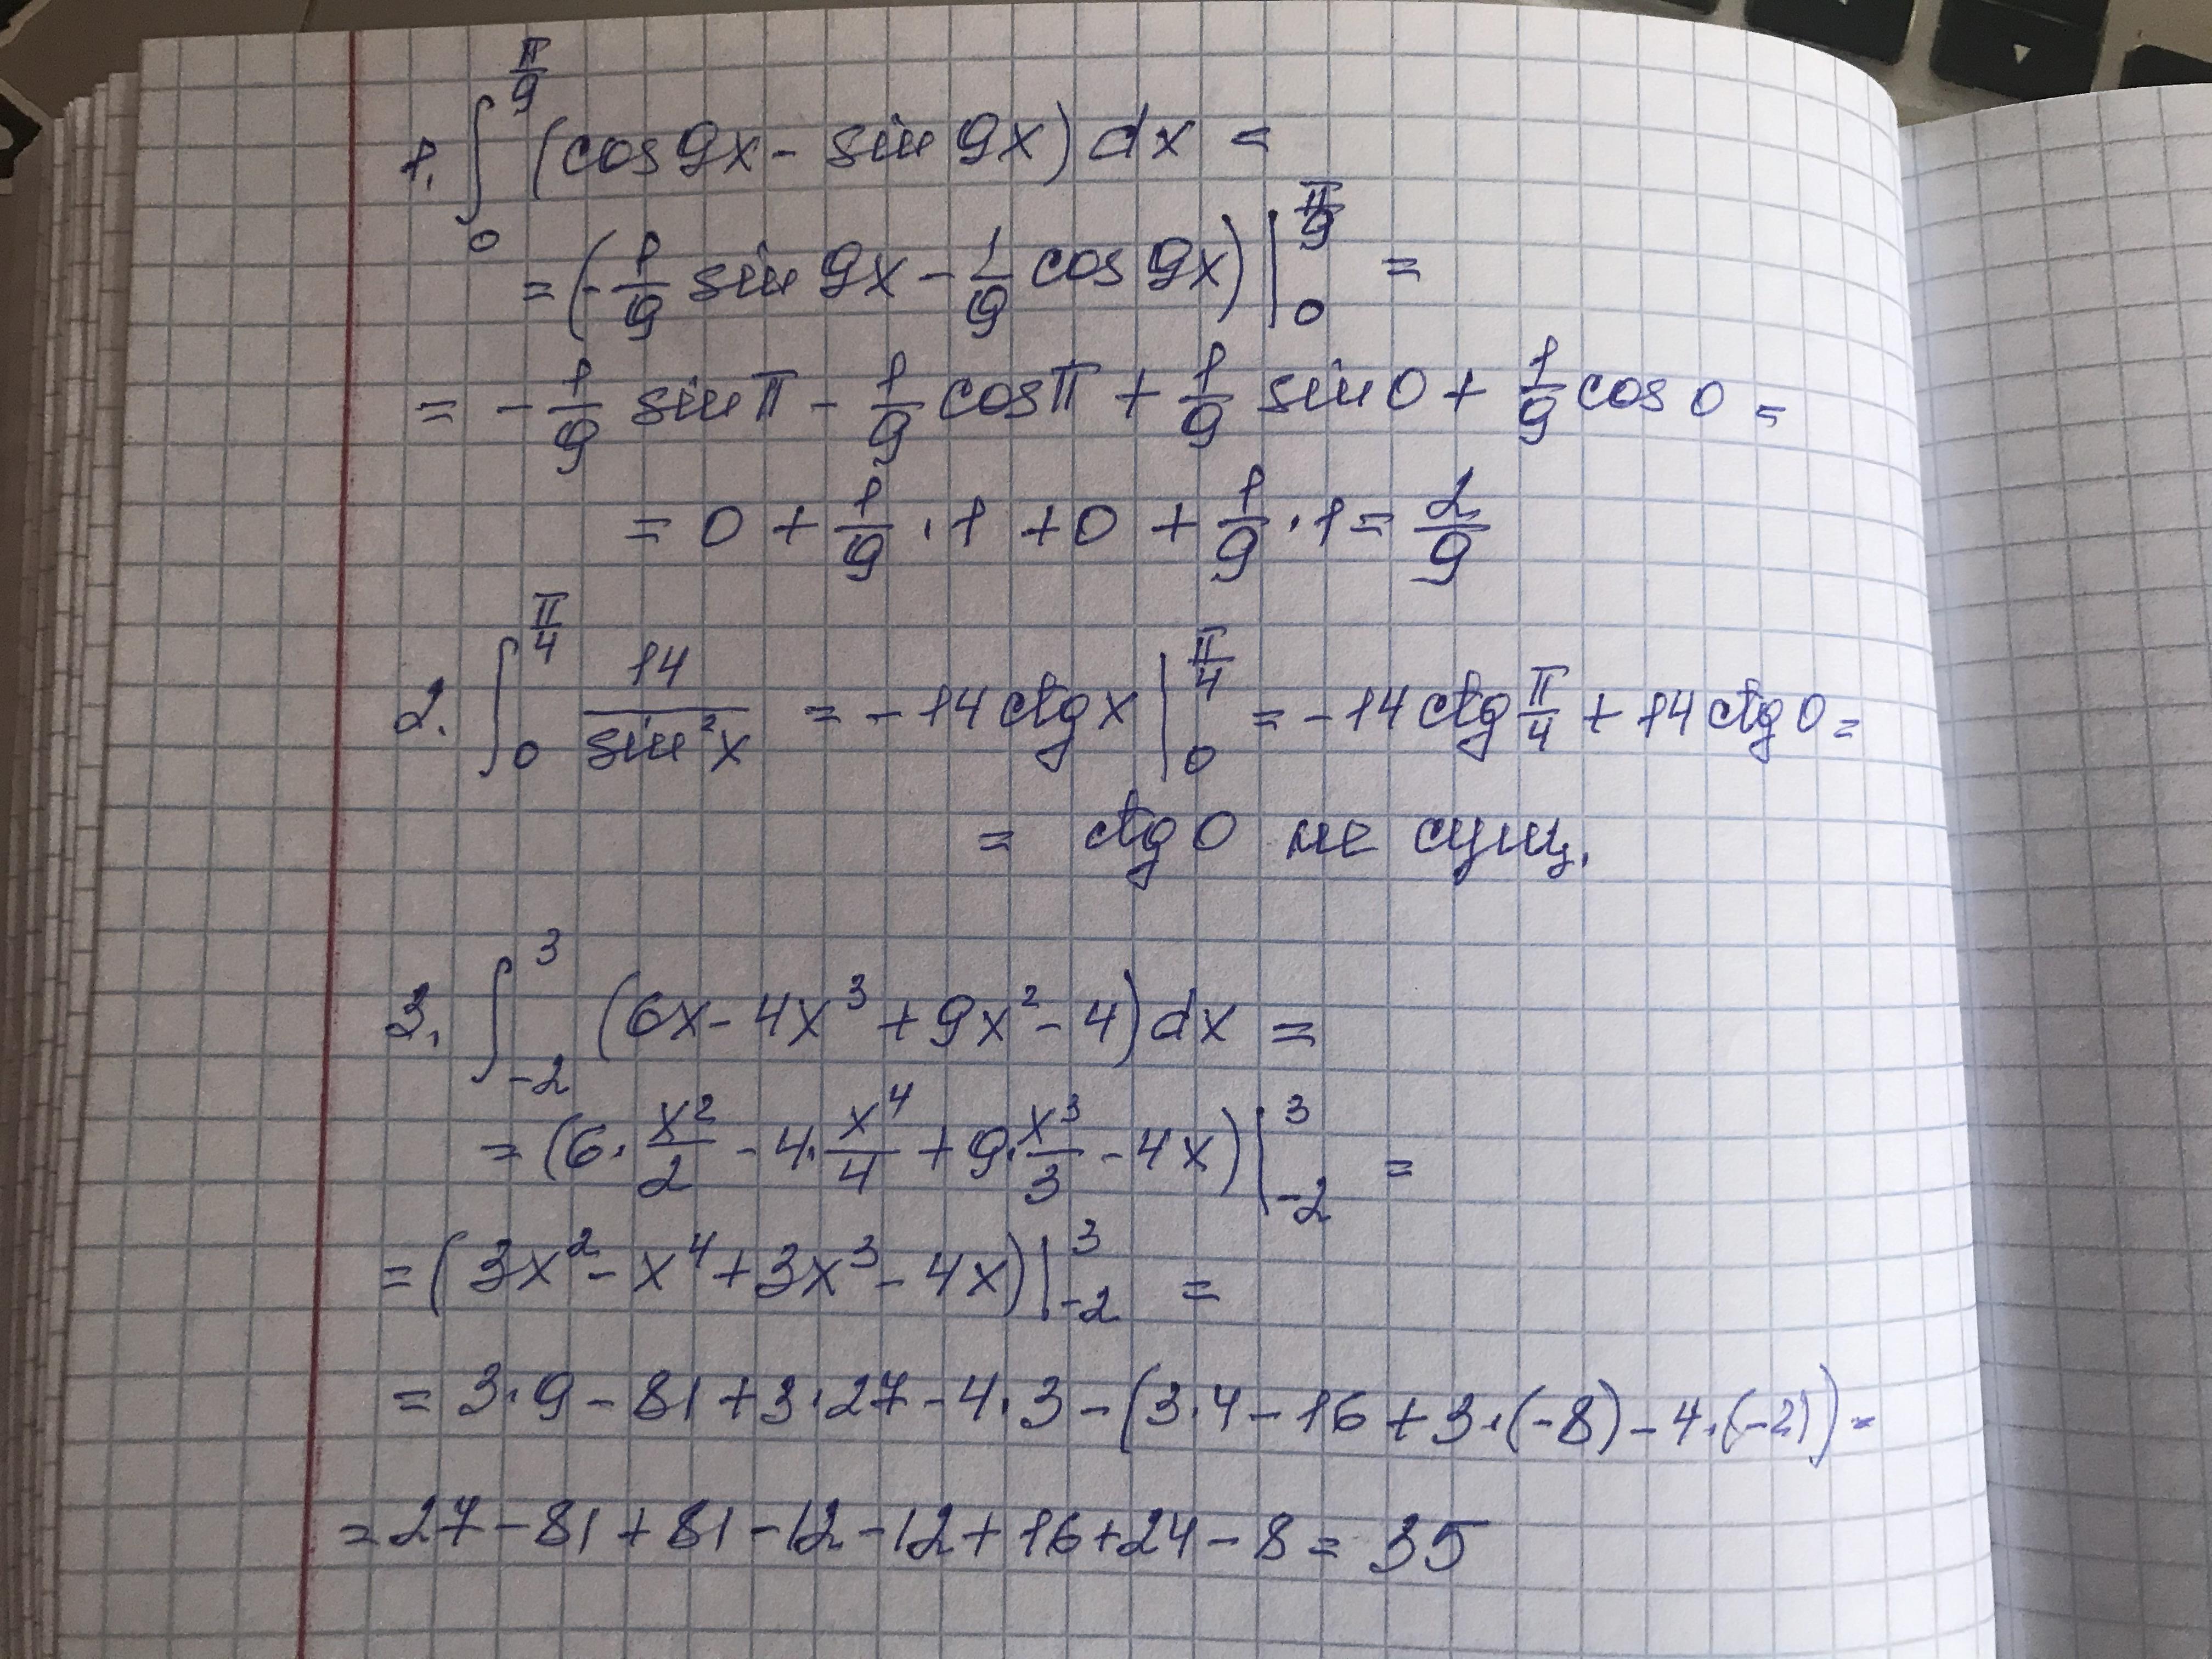 1. ∫₀^{π/9} (cos 9x - sin 9x) dx =
= (-1/9 sin 9x - 1/9 cos 9x) |₀^{π/9} =
= -1/9 sin π - 1/9 cos π + 1/9 sin 0 + 1/9 cos 0 =
= 0 + 1/9 · 1 + 0 + 1/9 · 1 = 2/9
2. ∫₀^{π/4} 14/sin²x = -14 ctg x |₀^{π/4} = -14 ctg π/4 + 14 ctg 0 =
= ctg 0 не сущ.
3. ∫₋₂³ (6x - 4x³ + 9x² - 4) dx =
= (6 · x²/2 - 4 · x⁴/4 + 9 · x³/3 - 4x) |₋₂³ =
= (3x² - x⁴ + 3x³ - 4x) |₋₂³ =
= 3·9 - 81 + 3·27 - 4·3 - (3·4 - 16 + 3·(-8) - 4·(-2)) =
= 27 - 81 + 81 - 12 - 12 + 16 + 24 - 8 = 35